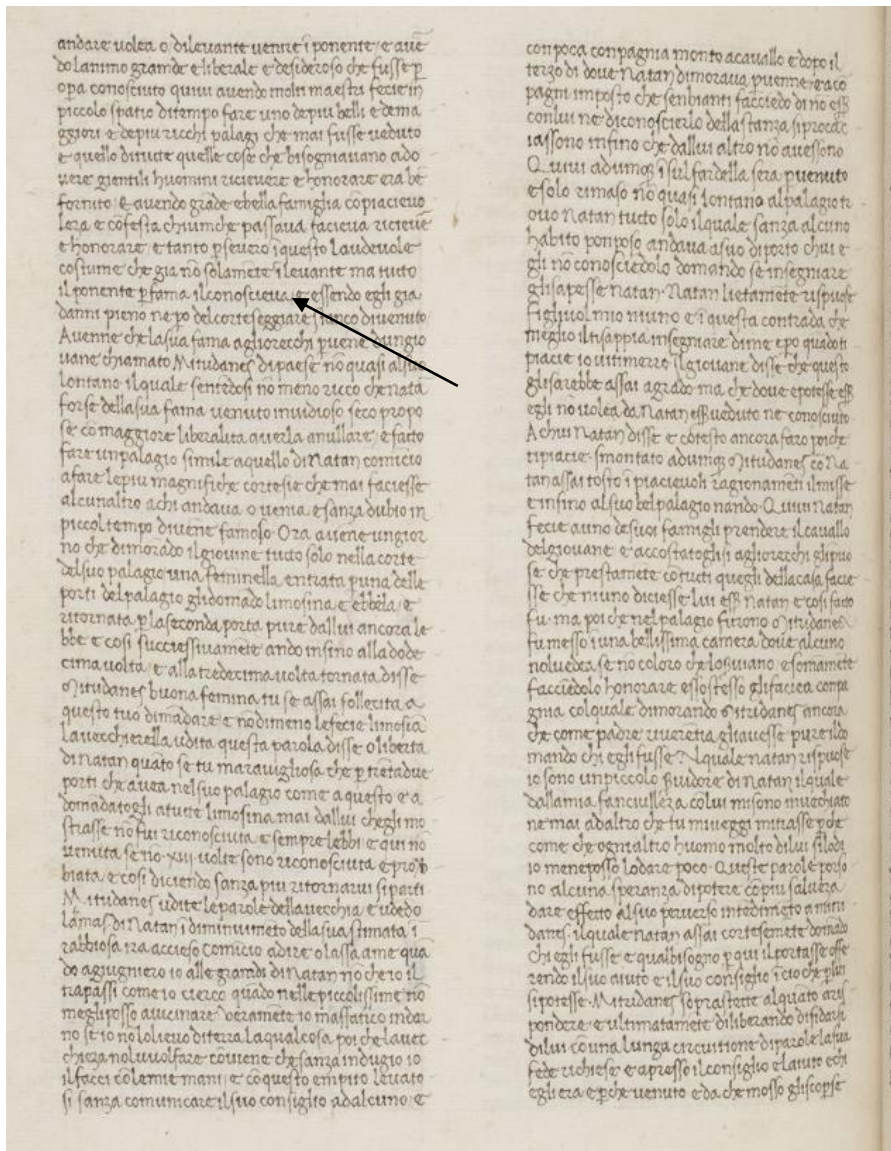 andare volea o dilevante venire ī ponente e avē
do lanimo grande e liberale e desideroso che fusse ꝑ
opa conosciuto quivi avendo molti maestri fecie in
piccolo spatio di tempo fare uno depiu belli e dema
ggiori e depiu ricchi palagi che mai fusse veduto
e quello dituctte quelle cose che bisogniavano ado
vere gientili huomini ricievere e honorare era bē
fornito e avendo grāde e bella famiglia cō piacievo
leza e cōfesta chiumche passava facieva ricievē
e honorare e tanto ꝑsevero ī questo laudevole
costume che gia nō solamēte ī levante ma tutto
il ponente ꝑ fama il conoscieva e essendo egli gia
danni pieno ne po del corteseggiare stanco divenuto
Avenne che la sua fama agliorecchi ꝑvēne dungio
vane chiamato Mitudanes di paese nō quasi al suo
lontano il quale sentēdosi nō meno ricco che natā
forse della sua fama venuto invidioso seco propo
se cō maggiore liberalita averla anullare e facto
fare un palagio simile aquello di Natan comicio
afare le piu magnifiche cortesie che mai faciesse
alcunaltro achi andava o venia e sanza dubio in
piccol tempo divene famoso. Ora aviene un gior
no che dimorādo il giovine tucto solo nella corte
del suo palagio una feminella entrata ꝑ una delle
porti del palagio gli domādo limosina e ebbela e
ritornata ꝑ la seconda porta pure dallui ancora le
bbe e cosi successivamēte ando insino alla dode
cima volta e alla tredecima volta tornata disse
Mitudanes buona femina tu se assai sollecita a
questo tuo dimādare e nōdimeno le fecie limosīa
la vecchierella udita questa parola disse o liberta
di Natan quāto se tu maravigliosa che ꝑ trētadue
porti che avea nel suo palagio come a questo e a
domādatogli atutte limosina mai dallui chegli mo
strasse nō fui riconosciuta e sempre lebbi e qui nō
venuta se nō .xiii. volte sono riconosciuta e prov
biata e cosi diciendo sanza piu ritornarvi si parti
Mitudanes udite le parole della vecchia e udēdo
la mas di Natan ī diminuimēto della sua stimata ī
rabbiosa ira accieso comicio adire o lassa ame quā
do agiugniero io alle grandi di Natan nō che io il
trapassi come io cierco quādo nelle piccolissime nō
megli posso avicinare veramēte io maffatico indar
no se io nō lo lievo di terra la qual cosa poi che la vec
chieza nol vuol fare cōviene che sanza indugio io
il facci cō le mie mani e cō questo empito levato
si sanza comunicare il suo consiglio adalcuno e
con poca conpagnia monto acavallo e dopo il
terzo di dove Natan dimorava ꝑvenne e a cō
pagni imposto che senbianti facciēdo di nō esser
conlui ne di conoscierlo della stanza si procac
iassono infino che dallui altro nō avessono
Quivi adumq̄ ī sul far della sera ꝑvenuto
e solo rimaso nō quasi lontano al palagio tr
ovo Natan tucto solo il quale sanza alcuno
habito ponposo andava a suo diporto chui e
gli nō conosciēdolo domando se insegniare
gli sapesse natan. Natan lietamēte rispuose
figliuol mio niuno e ī questa contrada che
meglio il ti sappia insegniare di me e pō quādo ti
piacie io vi ti merre il giovane disse che questo
gli sarebbe assai agrado ma che dove e potesse esser
egli nō volea da Natan esser veduto ne conosciuto
A chui Natan disse e cotesto ancora faro poi che
ti piacie. smontato adumq̄ Mitudanes cō Na
tan assai tosto ī piacievoli ragionamēti il misse
e infino al suo bel palagio nando. Quivi Natan
fecie a uno de suoi famigli prendere il cavallo
del giovane e accostatoglisi agliorecchi glipuo
se che prestamēte cō tucti quegli della casa facie
sse che niuno diciesse lui esser natan e cosi facto
fu. ma poi che nel palagio furono Mitudanes
fu messo ī una bellissima camera dove alcuno
nol vedea se nō coloro che lo servivano e somamēte
facciēdolo honorare esso stesso gli faciea conpa
gnia colquale dimorando Mitudanes ancora
che come padre riverētia gli avesse pure il do
mando chi egli fusse Al quale natan rispuose
io sono un piccolo servidore di Natan il quale
dalla mia fanciulleza colui mi sono invecchiato
ne mai adaltro che tu mi veggi mi trasse ꝑ che
come che ogni altro huomo molto di lui si lodi
io me ne posso lodare poco. Queste parole porso
no alcuna speranza di potere cō piu salveza
dare effecto al suo perverso intēdimēto a mitu
danes il quale Natan assai cortesemēte domādo
chi egli fusse e qual bisogno ꝑ qui il portasse offe
rendo il suo aiuto e il suo consiglio ī cio che ꝑ lui
si potesse. Mitudanes soprastette alquāto al ris
pondere e ultimatamēte diliberando di fidarsi
di lui cō una lunga circuitione di parole la sua
fede richiese e apresso il consiglio e laiuto e chi
egli era e ꝑche venuto e da che mosso gli scoperse